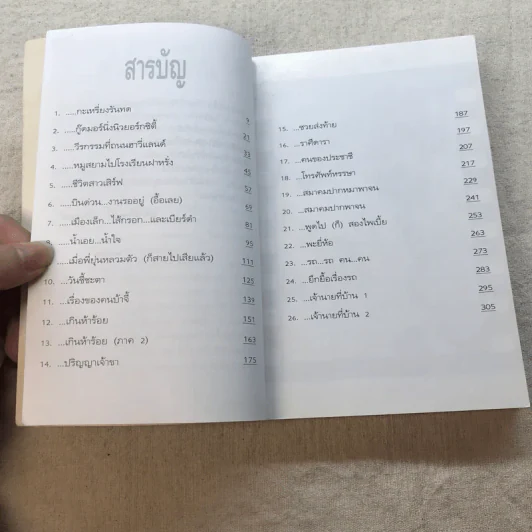 สารบัญ
1. ....กะเหรี่ยงรันทด 9
2. ....กู๊ดมอร์นิ่งนิวยอร์กซิตี้ 21
3. ....วีรกรรมที่ถนนฮาวีแลนด์ 23
4. ....หมูสยามไปโรงเรียนฝาหรั่ง 45
5. ....ชีวิตสาวเสิร์ฟ 57
6. ....บินด่วน...งานรออยู่ (อื้อเลย) 69
7. ....เมืองเล็ก...ไส้กรอก...และเบียร์ดำ 81
8. ....น้ำเอย...น้ำใจ 95
....เมื่อพี่ยุ่นหลวมตัว (ก็สายไปเสียแล้ว) 111
10. ...วันชี้ชะตา 125
11. ...เรื่องของคนบ้าจี้ 139
12. ...เกินห้าร้อย 151
13. ...เกินห้าร้อย (ภาค 2) 163
14. ...ปริญญาเจ้าขา 175
15. ...ชวยส่งท้าย 187
16. ...ราศีดารา 197
17. ...คนของประชาชี 207
18. ...โทรศัพท์หรรษา 217
19. ...สมาคมปากหมาพาจน 229
20. ...สมาคมปากพาจน 241
21. ...พูดไป (ก็) สองไพเบี้ย 253
22. ...พะยี่ห้อ 263
23. ...รถ...รถ คน...คน 273
24. ...ยึกยื้อเรื่องรถ 283
25. ...เจ้านายที่บ้าน 1 295
26. ...เจ้านายที่บ้าน 2 305